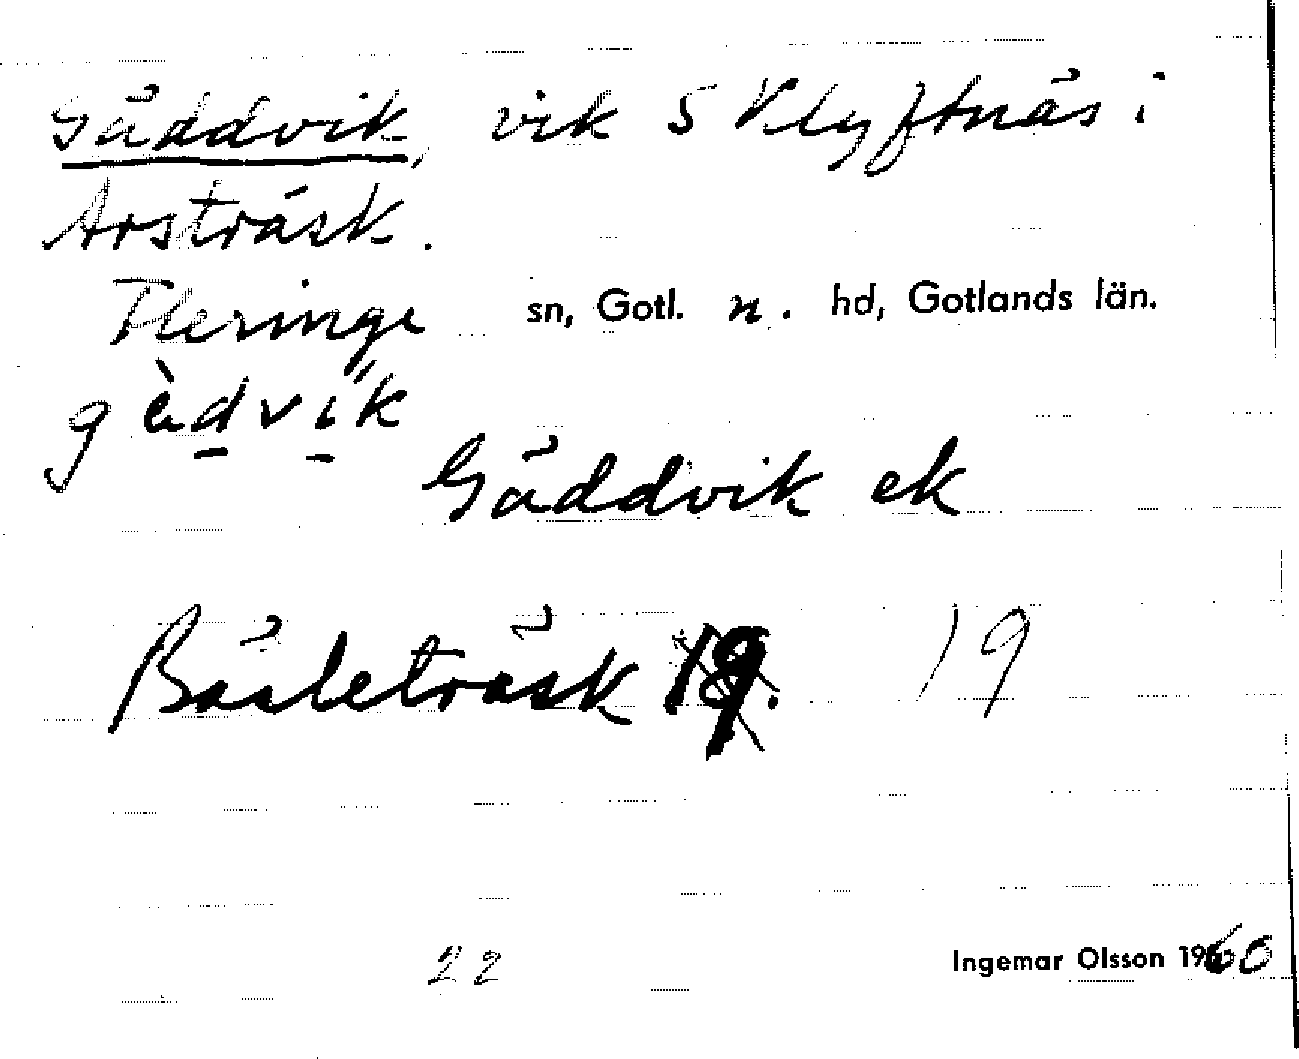 Gäddvik, vik S Klyftnäs i
Arsträsk.
Fleringe sn, Gotl. n. hd, Gotlands län.
gàdvík
Gäddvik ek
Bästeträsk 19
22
Ingemar Olsson 1960